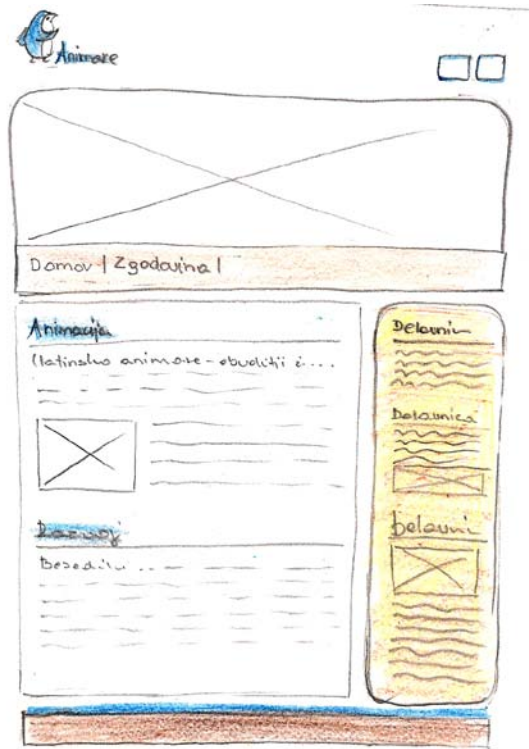 Animare
Domov | Zgodovina |
Animacija
(latinsko animare - obuditi i....
Razvoj
Besedilo ..
Delavni
Delavnica
Delavni